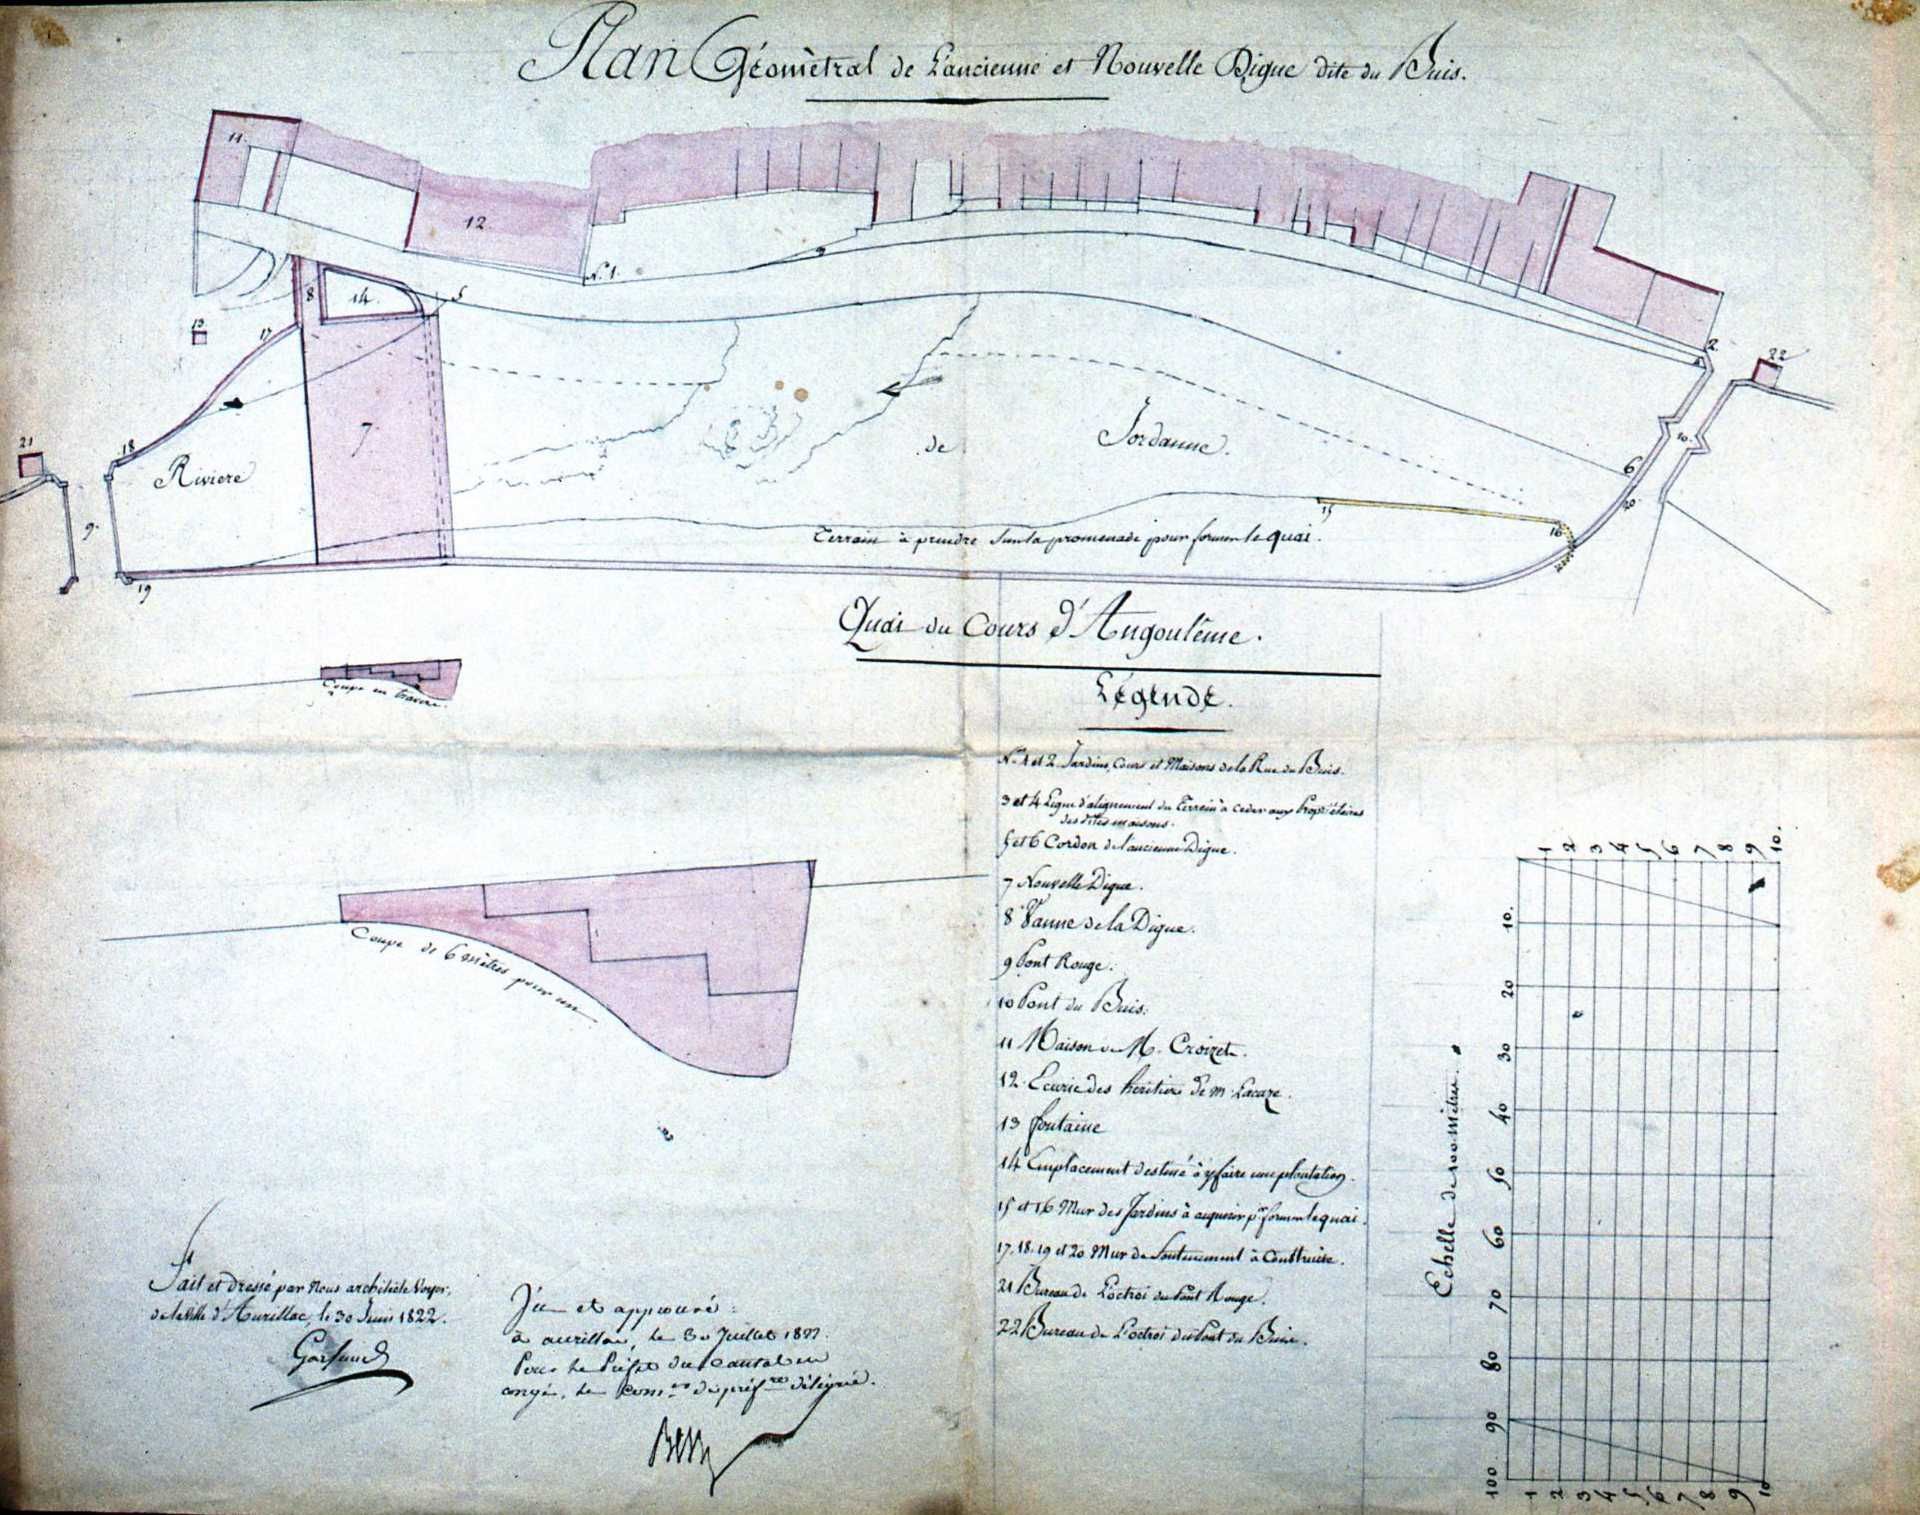 Plan Géomètral de L'ancienne et Nouvelle Digue dite du Buis.
11.
12.
N.° 1.
3
8
14.
5
13
17
2.
4
22
21
18
7
Riviere
de
Jordanne.
10.
6
20.
9.
15
16
Terrain à prendre Sur la promenade pour former le quai.
19
Quai du Cours d'Angoulême.
Coupe en travers.
Légende.
N.os 1 et 2. Jardins, Cours et Maisons de la Rue du Buis.
3 et 4 Ligne d'alignement du Terrein à ceder aux Propriétaires
des dites maisons.
5 et 6 Cordon de l'ancienne Digue.
7 Nouvelle Digue.
8 Vanne de la Digue.
9 Pont Rouge.
10 Pont du Buis.
11 Maison de M. Croizet.
12. Ecurie des heritiers de m. Lacaze.
13 fontaine
14 Emplacement destiné à y faire une plantation.
15 et 16 Mur des Jardins à acquerir pr. former le quai.
17. 18. 19 et 20 Mur de Soutenement à Construire.
21 Bureau de L'octroi du Pont Rouge.
22 Bureau de L'octroi du Pont du Buis.
Coupe de 6 mètres pour un
Fait et dressé par Nous architecte Voyer,
de la Ville d'Aurillac, le 30 Juin 1822.
Vu et approuvé:
à aurillac, le 30 Juillet 1822.
Pour le Préfet du Cantal en
congé, le Con.er de préf.re délégué.
Echelle de 100 mètres.
1 2 3 4 5 6 7 8 9 10.
10.
20
30
40
50
60
70
80
90
100.
1 2 3 4 5 6 7 8 9 10